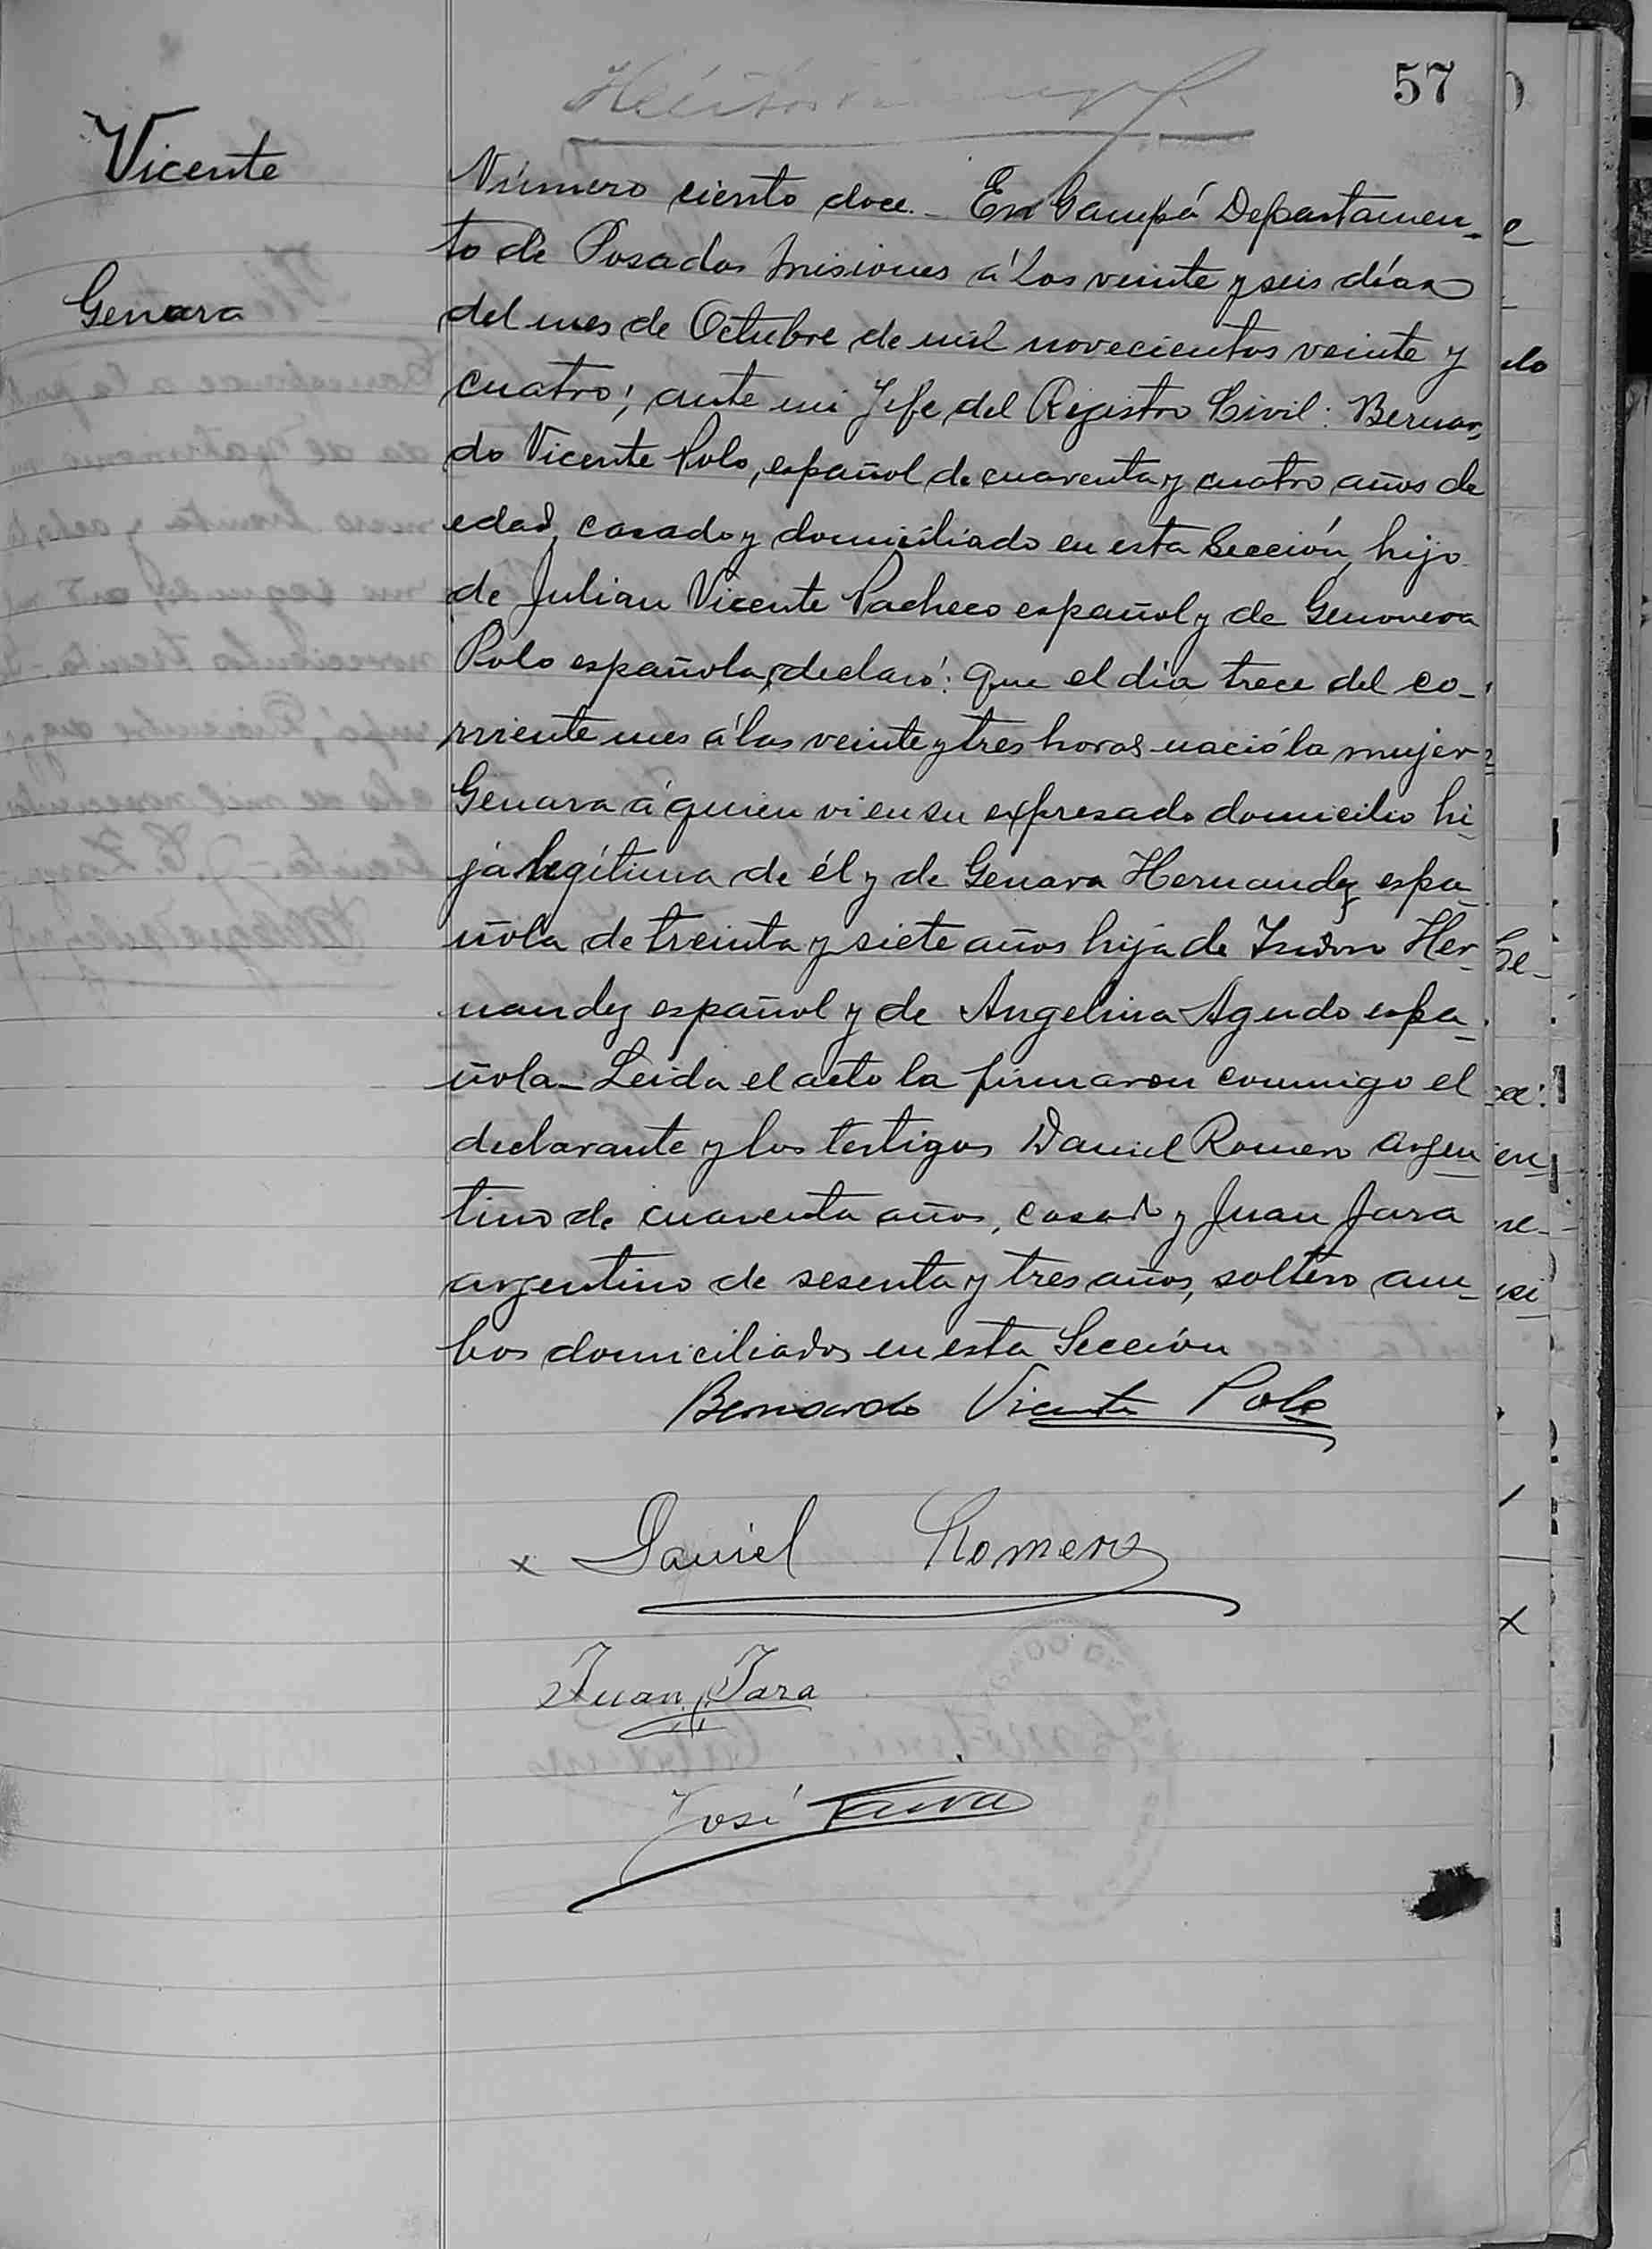 57
Vicente
Genara
Número ciento doce.- En Garupá Departamen-
to de Posadas Misiones á los veinte y seis días
del mes de Octubre de mil novecientos veinte y
cuatro; ante mi Jefe del Registro Civil: Bernar-
do Vicente Polo, español de cuarenta y cuatro años de
edad, casado y domiciliado en esta Sección, hijo
de Julian Vicente Pacheco español y de Genoveva
Polo española, declaró: que el día trece del co-
rriente mes á las veinte y tres horas nació la mujer
Genara á quien vi en su expresado domicilio hi-
ja legítima de él y de Genara Hernandez espa-
ñola de treinta y siete años hija de Isidoro Her-
nandez español y de Angelina Agudo espa-
ñola- Leida el acto la firmaron conmigo el
declarante y los testigos Daniel Romero argen-
tino de cuarenta años, casado y Juan Jara
argentino de sesenta y tres años, soltero am-
bos domiciliados en esta Sección
Bernardo Vicente Polo
x Daniel Romero
Juan Jara
José